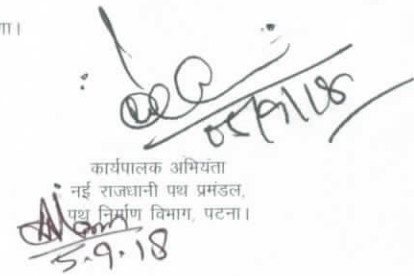 गा।
05/9/18
कार्यपालक अभियंता
नई राजधानी पथ प्रमंडल,
पथ निर्माण विभाग, पटना।
5.9.18